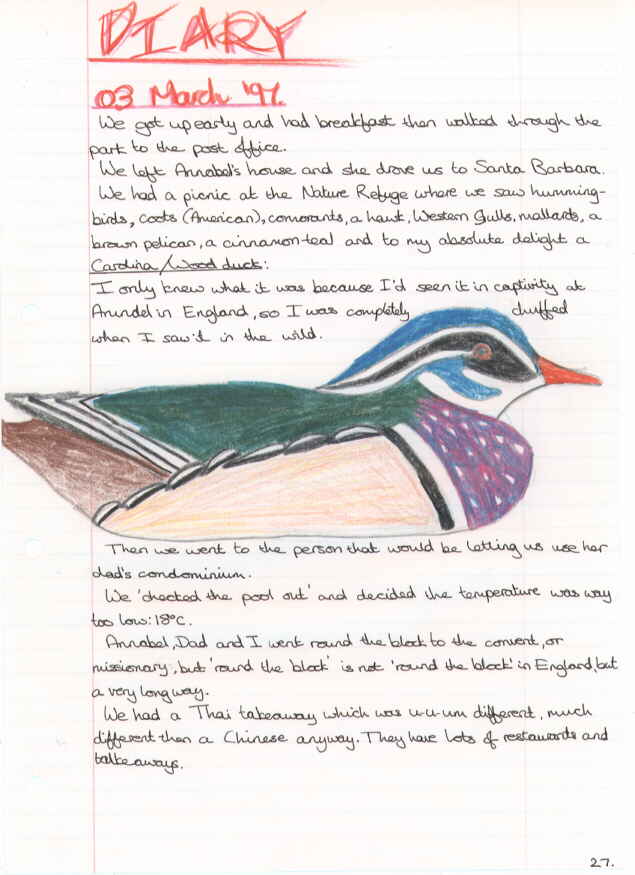 DIARY
03 March '97.
We got up early and had breakfast then walked through the
part to the post office.
We left Annabel's house and she drove us to Santa Barbara.
We had a picnic at the Nature Refuge where we saw humming-
birds, coots (American), comorants, a hawk, Western Gulls, mallards, a
brown pelican, a cinnamon-teal and to my absolute delight a
Carolina/Wood duck:
I only knew what it was because I'd seen it in captivity at
Arundel in England, so I was completely chuffed
when I saw it in the wild.
Then we went to the person that would be letting us use her
dad's condominium.
We 'checked the pool out' and decided the temperature was way
too low: 18°C.
Annabel, Dad and I went round the block to the convent, or
missionary, but 'round the block' is not 'round the block' in England, but
a very long way.
We had a Thai takeaway which was u-u-um different, much
different than a Chinese anyway. They have lots of restaurants and
talkeaways.
27.